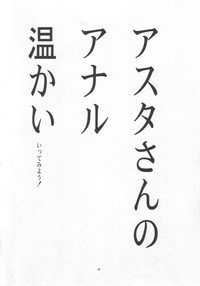 アスタさんの
アナル
温かい
いってみよう!